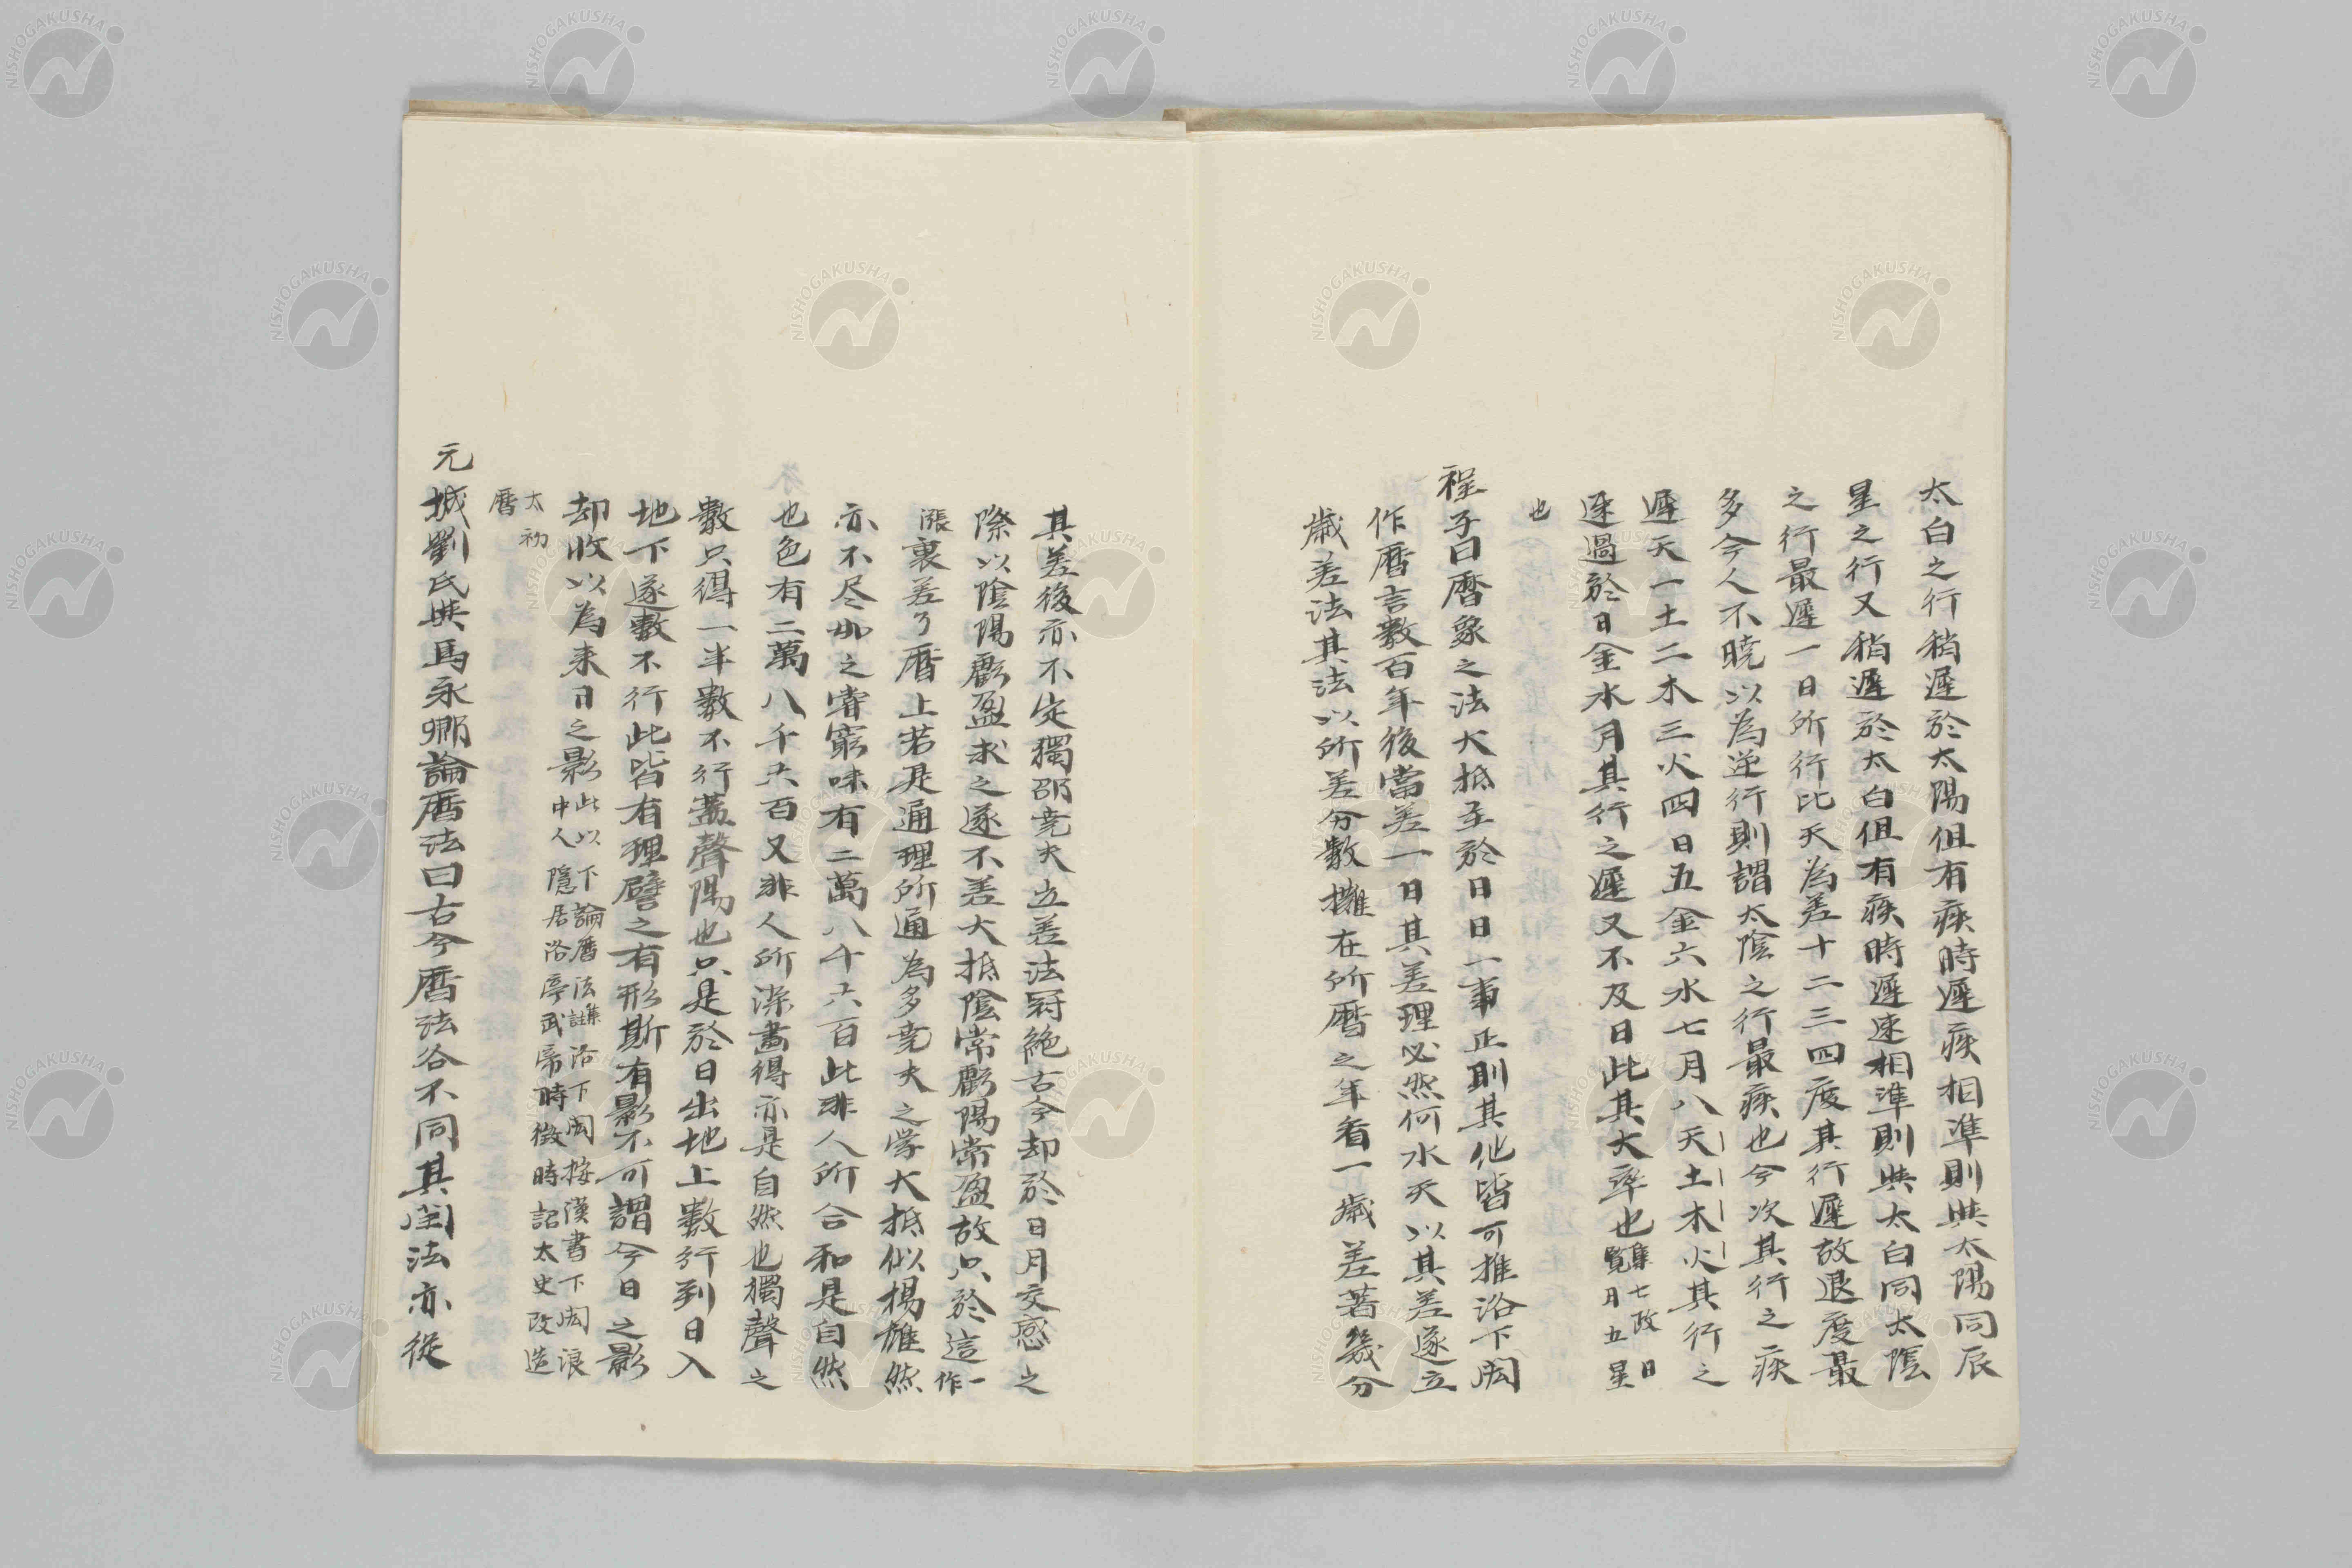 太白之行稍遲於太陽但有疾時遲疾相準則與太陽同辰
星之行又稍遲於太白但有疾時遲速相準則與太白同太陰
之行最遲一日所行比天為差十二三四度其行遲故退度最
多今人不曉以為逆行則謂太陰之行最疾也今次其行之疾
遲天一土二木三火四日五金六水七月八天土木火其行之
速過於日金水月其行之遲又不及日此其大率也集七政日
覽月五星
也
程子曰暦象之法大抵主於日日一事正則其他皆可推洛下閎
作暦言數百年後當差一日其差理必然何水天以其差遂立
歲差法其法以所差分數攤在所暦之年看一歲差著幾分
其差後亦不定獨邵堯夫立差法冠絶古今却於日月交感之
際以陰陽虧盈求之遂不差大抵陰常虧陽常盈故只於這一
作
張裏差了暦上若是通理所通為多堯夫之学大抵似揚雄然
亦不尽如之甞窮味有二萬八千六百此非人所合和是自然
也色有二萬八千六百又非人所染畫得亦是自然也獨聲之
數只得一半數不行蓋聲陽也只是於日出地上數行到日入
地下遂數不行此皆有理譬之有形斯有影不可謂今日之影
却收以為来日之影此以下論暦法集註洛下閎按漢書下閎浪
中人隠居洛亭武帝時徴時詔太史改造
太初
暦
元城劉氏與馬永卿論暦法曰古今暦法各不同其閏法亦従